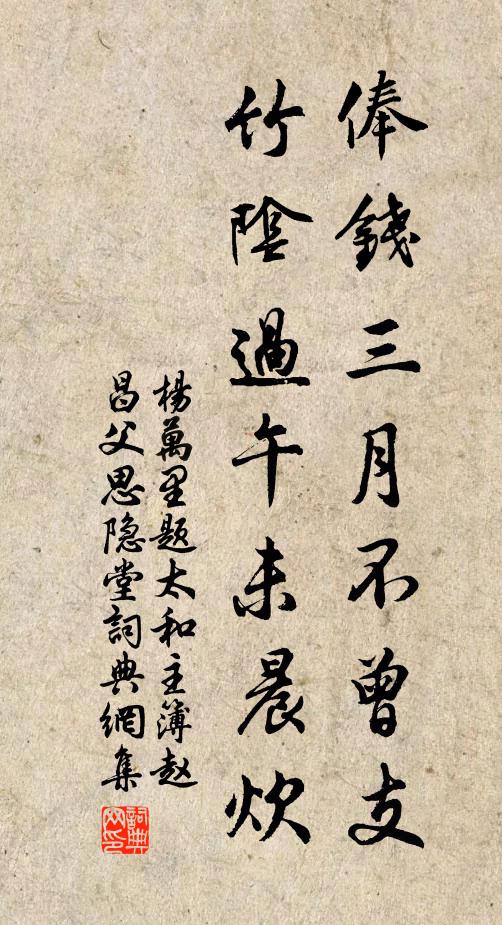 俸錢三月不曾支
竹陰過午未晨炊
楊萬里題太和主簿赵
昌父思隐堂詞典網集
詞典网印